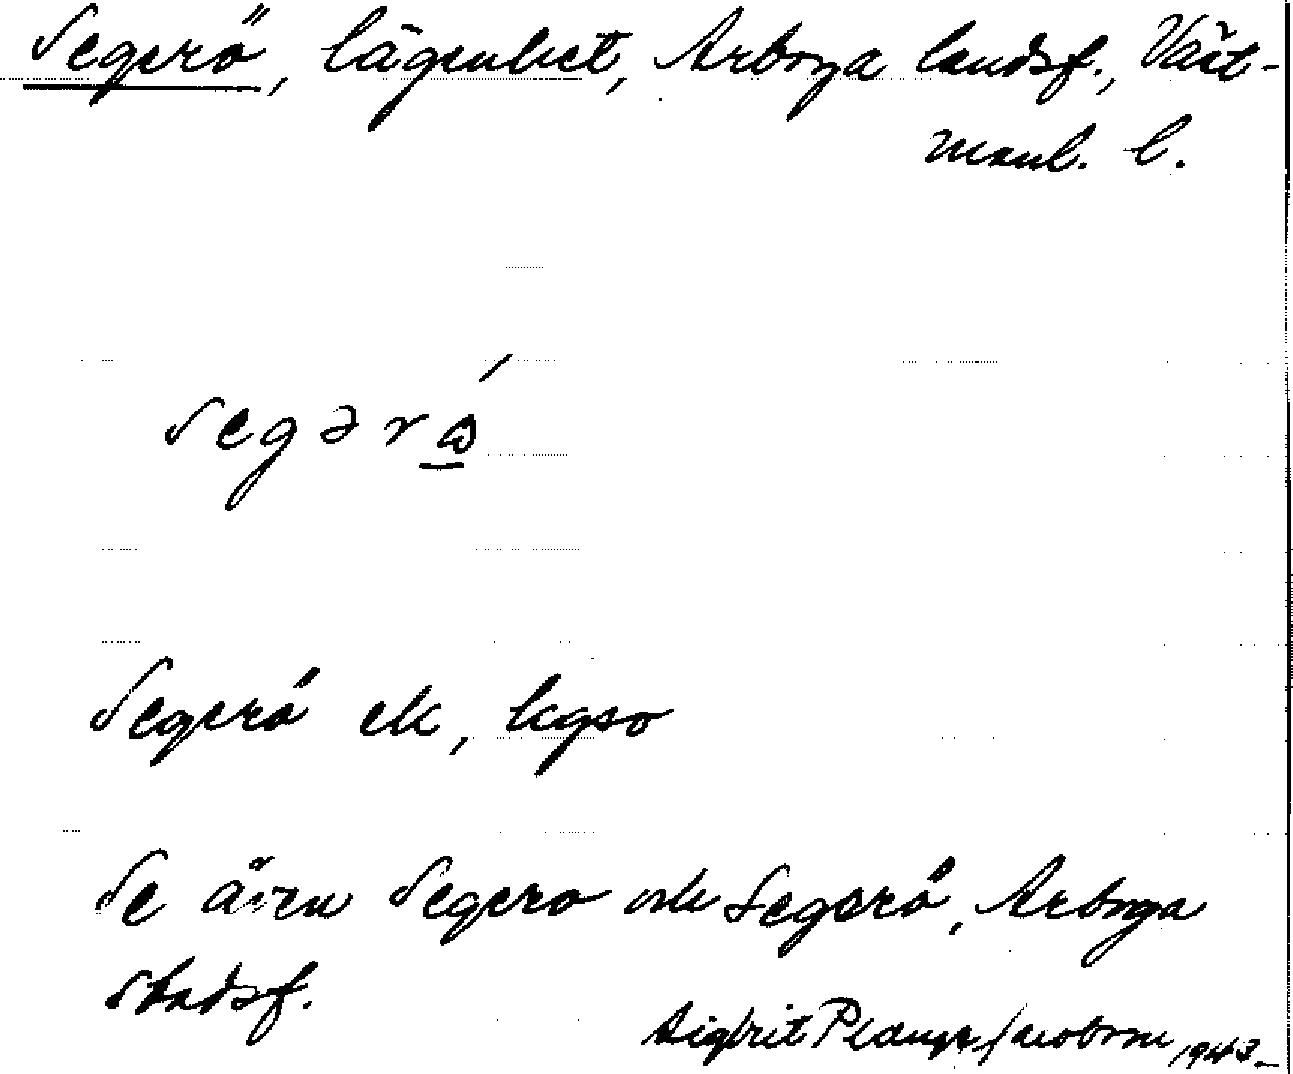 Segerö, lägenhet, Arboga landsf., Väst-
manl. l.
Segerö ek, lgso
Se även Segero och Segerö, Arboga
stadsf.
Sigfrit 1943